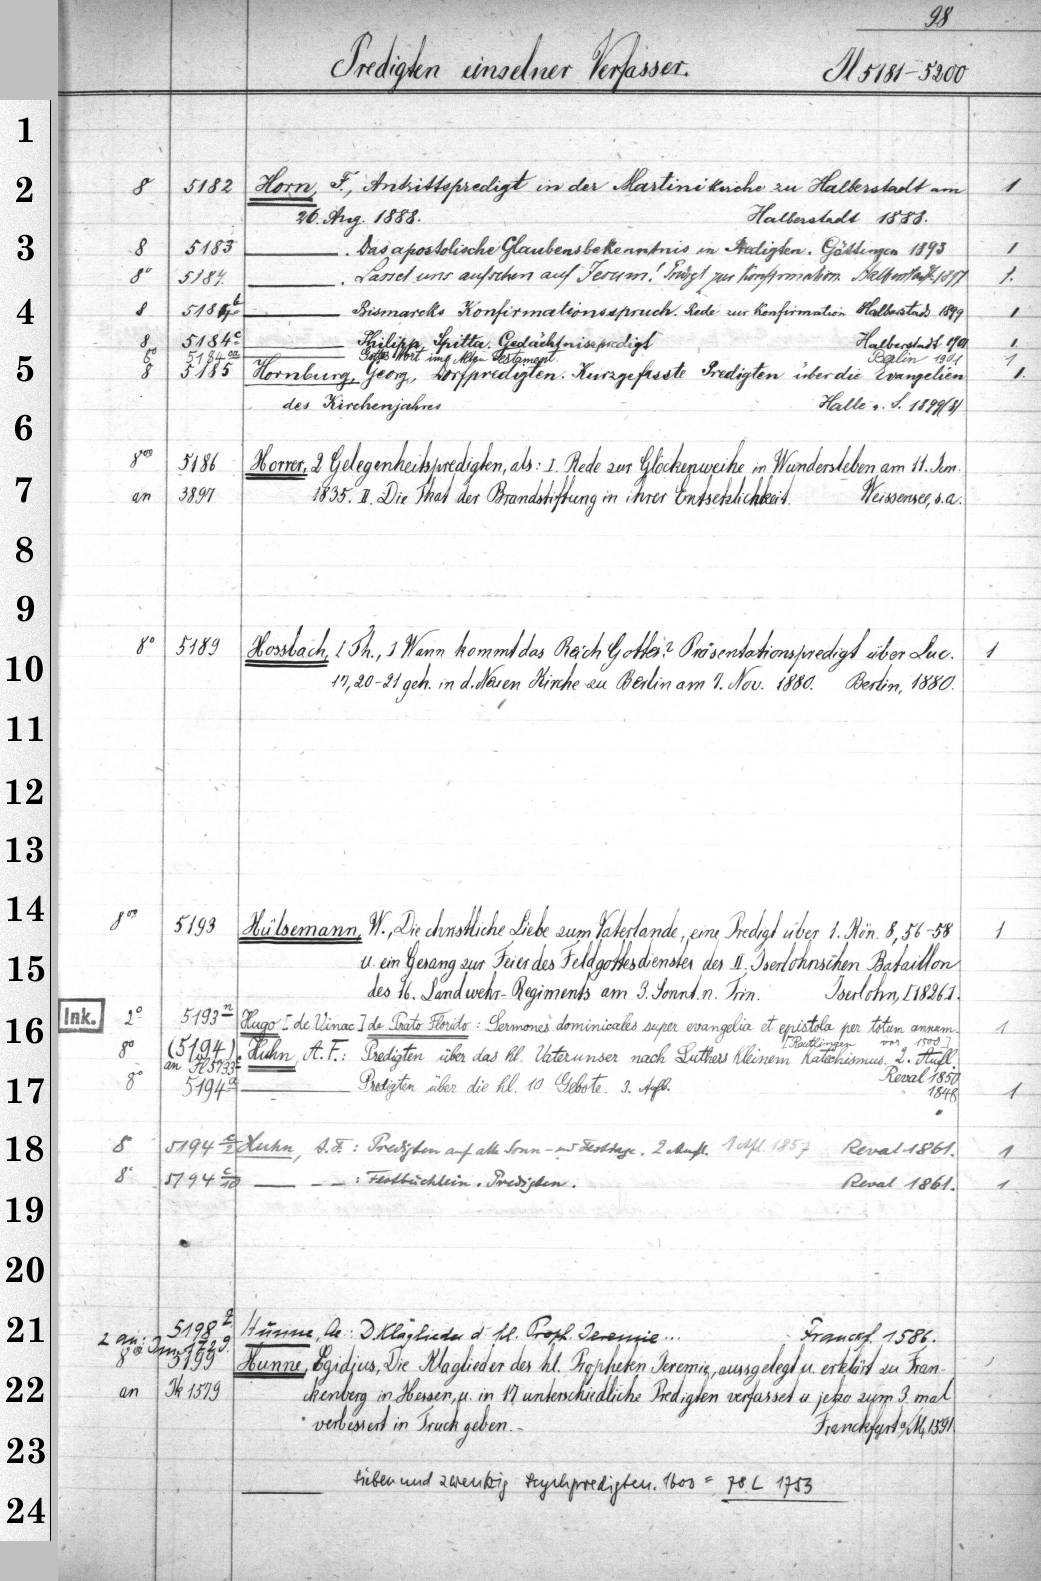 98
Predigten einzelner Verfasser. Il 5181-5200
1
2 8 5182 Horn, F., Antrittspredigt in der Martinikirche zu Halberstadt am 1
26. Aug. 1888. Halberstadt 1888.
3 8 5183 ——— . Das apostolische Glaubensbekenntnis in Predigten. Göttingen 1893 1
8° 5184. ——— . Lasset uns aufsehen auf Jesum! Predigt zur Konfirmation. Halberstadt 1897 1.
4 8 5184 b ——— Bismarcks Konfirmationsspruch. Rede zur Konfirmation Halberstadt 1899 1
8 5184 c ——— Philipp Spitta. Gedächtnispredigt Halberstadt 1901 1
8° 5184 ca ——— Gottes Wort im Alten Testament. Berlin 1901 1
5 8 5185 Hornburg, Georg, Dorfpredigten. Kurzgefasste Predigten über die Evangelien 1.
des Kirchenjahres Halle a. S. 1899
6
8vo 5186 Horrer, 2 Gelegenheitspredigten, als: I. Rede zur Glockenweihe in Wundersleben am 11. Jan.
7 an 3897 1835. II. Die That der Brandstiftung in ihrer Entsetzlichkeit. Weissensee, s.a.
8
9
8° 5189 Hossbach, [Th.,] Wann kommt das Reich Gottes? Präsentationspredigt über Luc. 1
10 17, 20-21 geh. in d. Neuen Kirche zu Berlin am 7. Nov. 1880. Berlin, 1880.
11
12
13
14 8vo 5193 Hülsemann, W., Die christliche Liebe zum Vaterlande, eine Predigt über 1. Kön. 8, 56-58 1
15 u. ein Gesang zur Feier des Feldgottesdienstes des II. Iserlohnschen Bataillon
des 16. Landwehr-Regiments am 3. Sonnt. n. Trin. Iserlohn, [1826].
16 Ink. 2° 5193 n Hugo [de Vinac] de Prato Florido: Sermones dominicales super evangelia et epistola per totum annum. 1
[Reutlingen vor 1500]
8° (5194). Huhn, A. F.: Predigten über das hl. Vaterunser nach Luthers kleinem Katechismus. 2. Aufl.
an Il 5733 Reval 1850
17 8° 5194 a ——— Predigten über die hl. 10 Gebote. 3. Aufl. 1848 1
18 8 5194 c/2 Huhn, A. F.: Predigten auf alle Sonn- und Festtage. 2 Aufl. 1 Afl. 1857 Reval 1861. 1
8° 5194 c/10 — — — : Festbüchlein. Predigten. Reval 1861. 1
19
20
21 5198 Hunne, Ae.: D. Klaglieder d hl. Proph. Jeremie... Franckf. 1586.
2 an:
8° 5199 Hunne, Egidjus, Die Klaglieder des hl. Propheten Jeremie, aussgelegt u. erklärt zu Fran-
22 an Ik 1579 ckenberg in Hessen, u. in 17 unterschiedliche Predigten verfasset u jetzo zum 3. mal
verbessert in Truck geben. Franckfurt a/M, 1591
23
——— Sieben und zwentzig predigten. 1600 = 78 L 1753
24